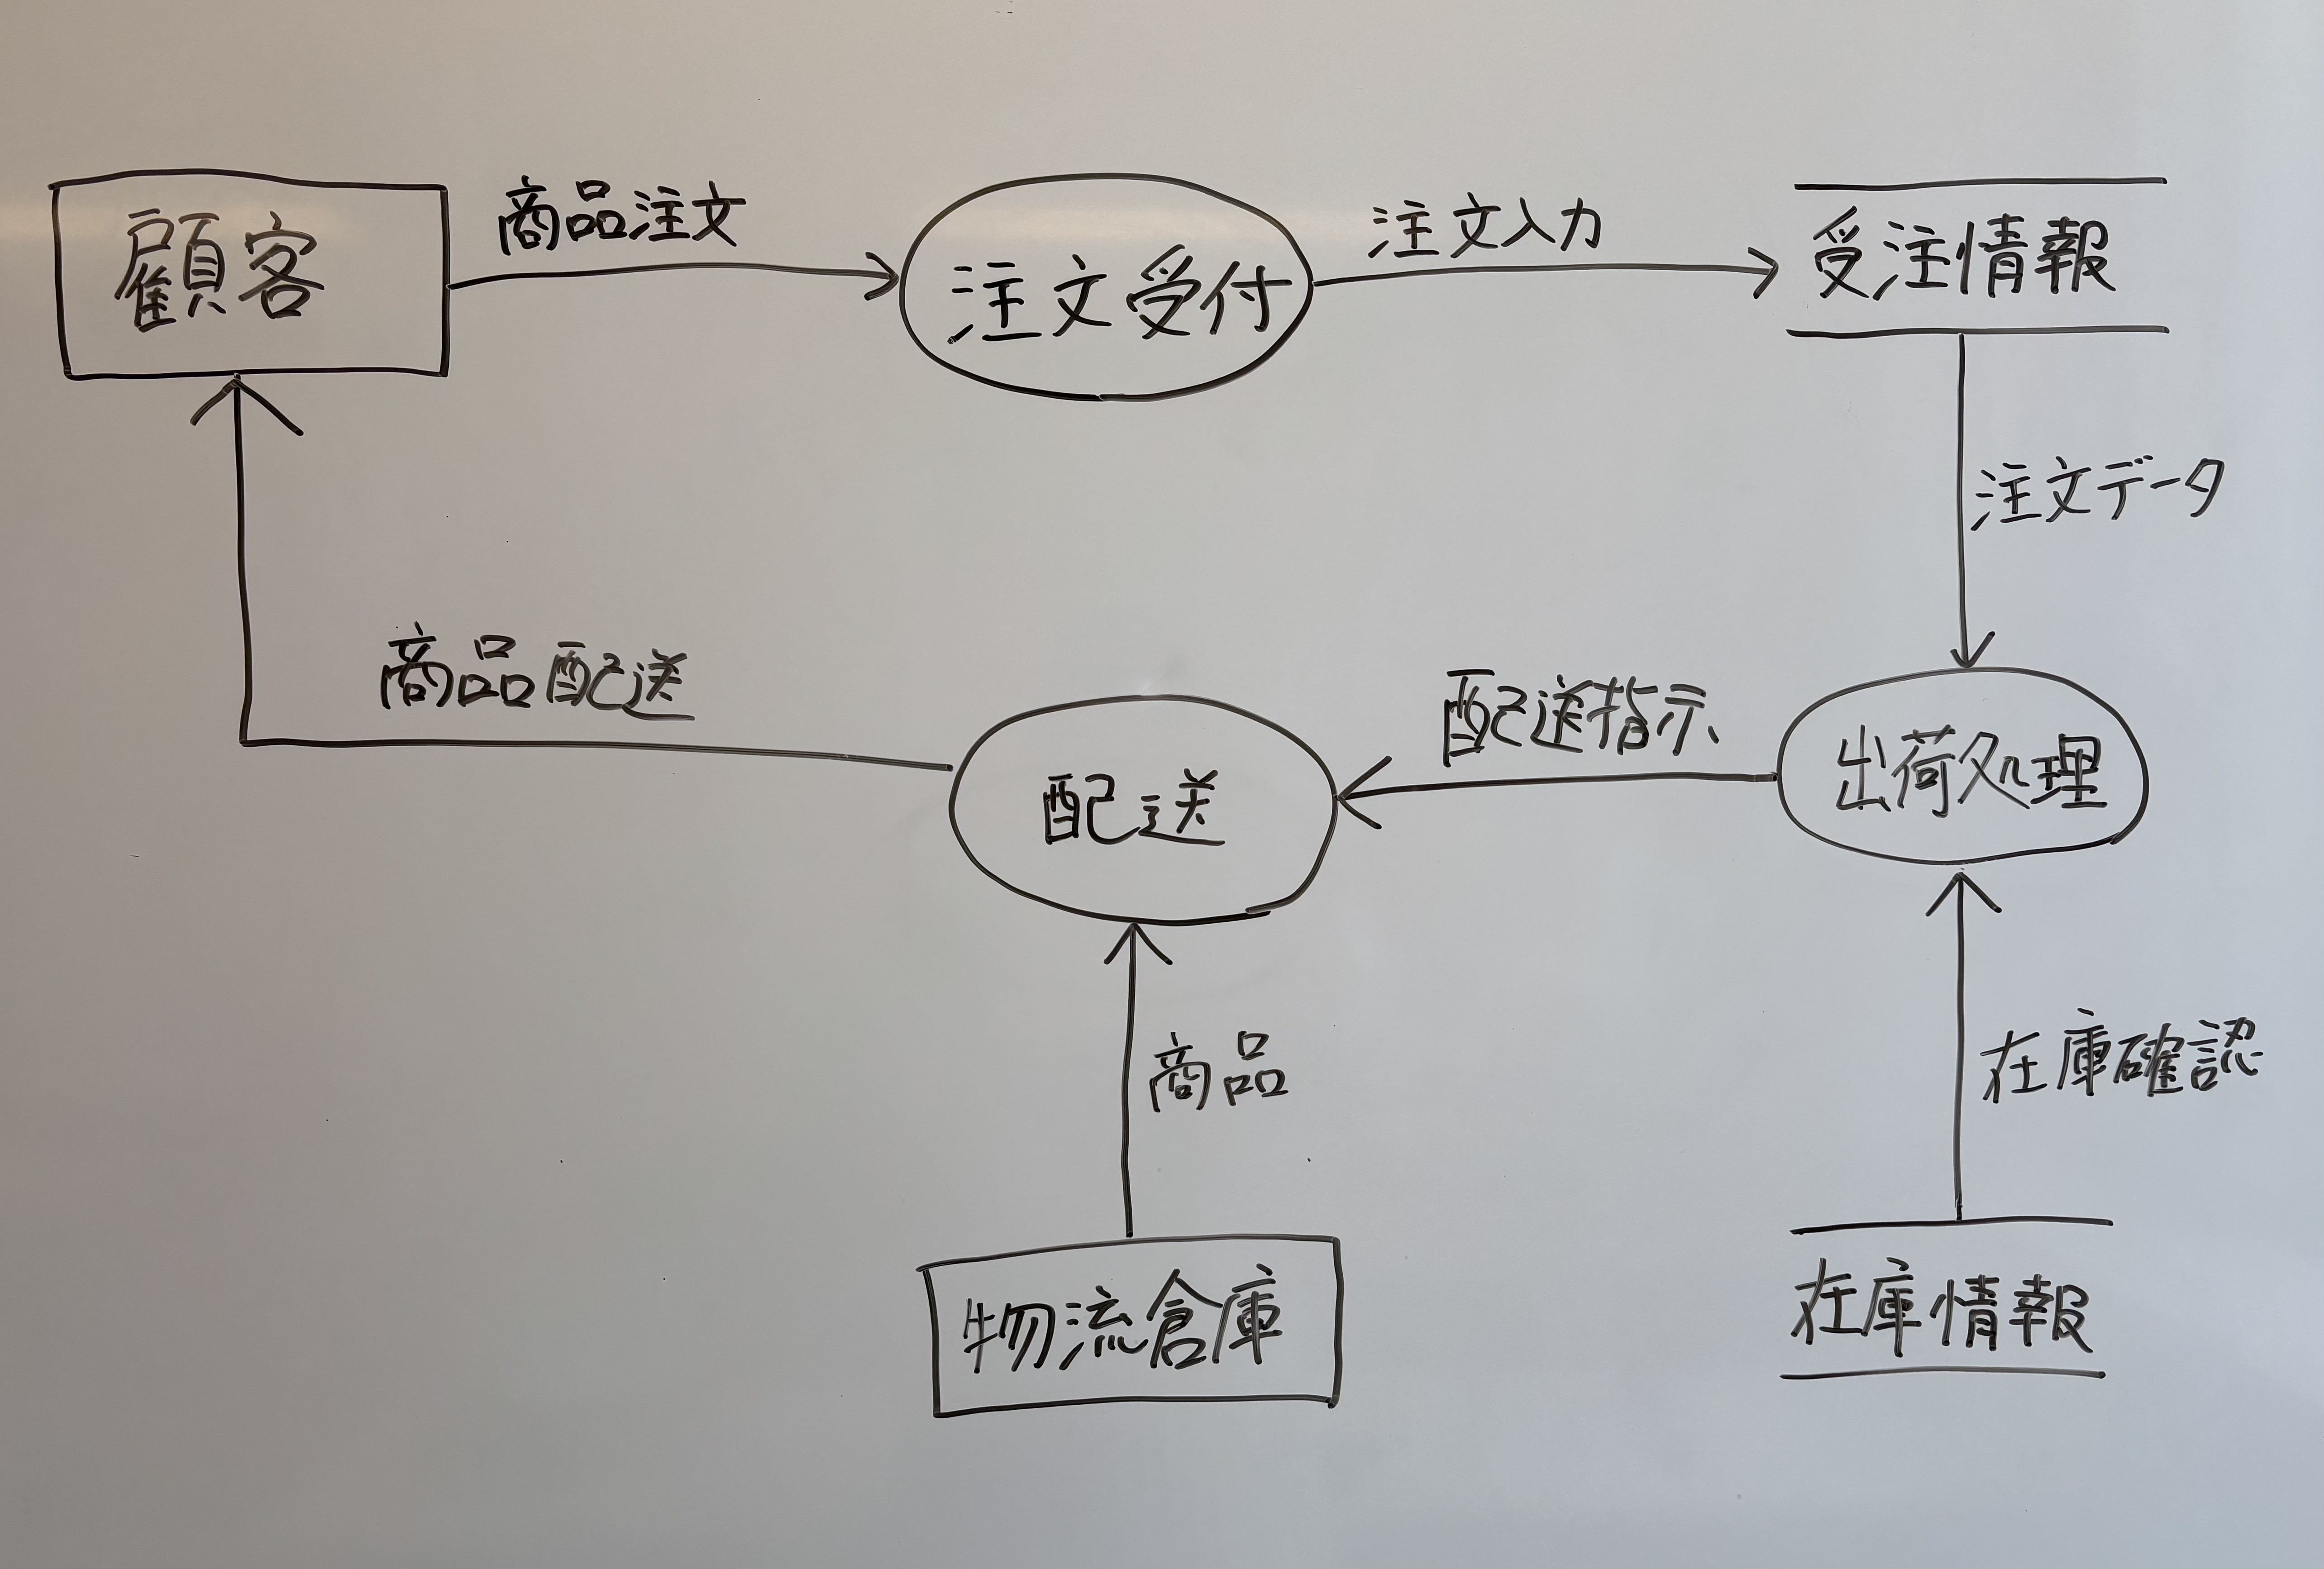 顧客
商品注文
注文受付
注文入力
受注情報
注文データ
商品配送
配送
配送指示
出荷処理
商品
在庫確認
物流倉庫
在庫情報